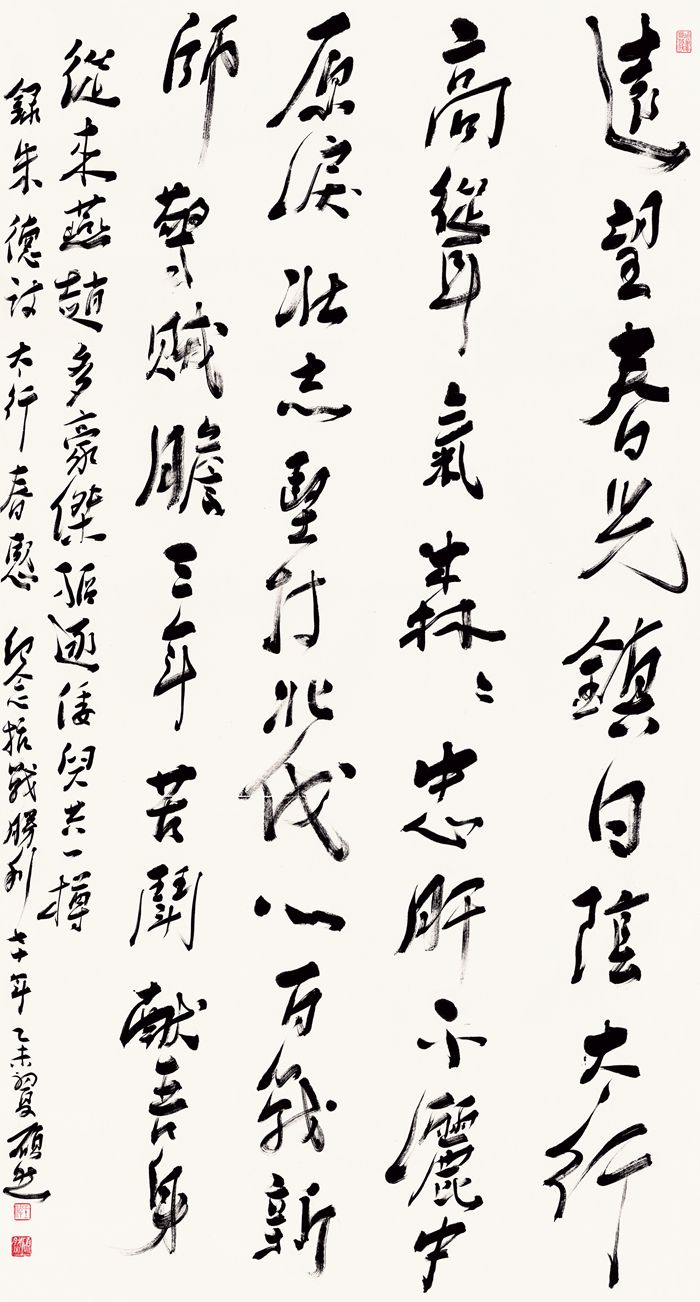 遠望春光鎮日陰太行
高聳氣森〻忠肝不灑中
原淚壯志堅持北伐心百戰新
師驚賊膽三年苦鬪獻吾身
從來燕趙多豪傑驅逐倭兒共一樽
錄朱德詩太行春感 紀念抗戰勝利七十年 乙未初夏 碩